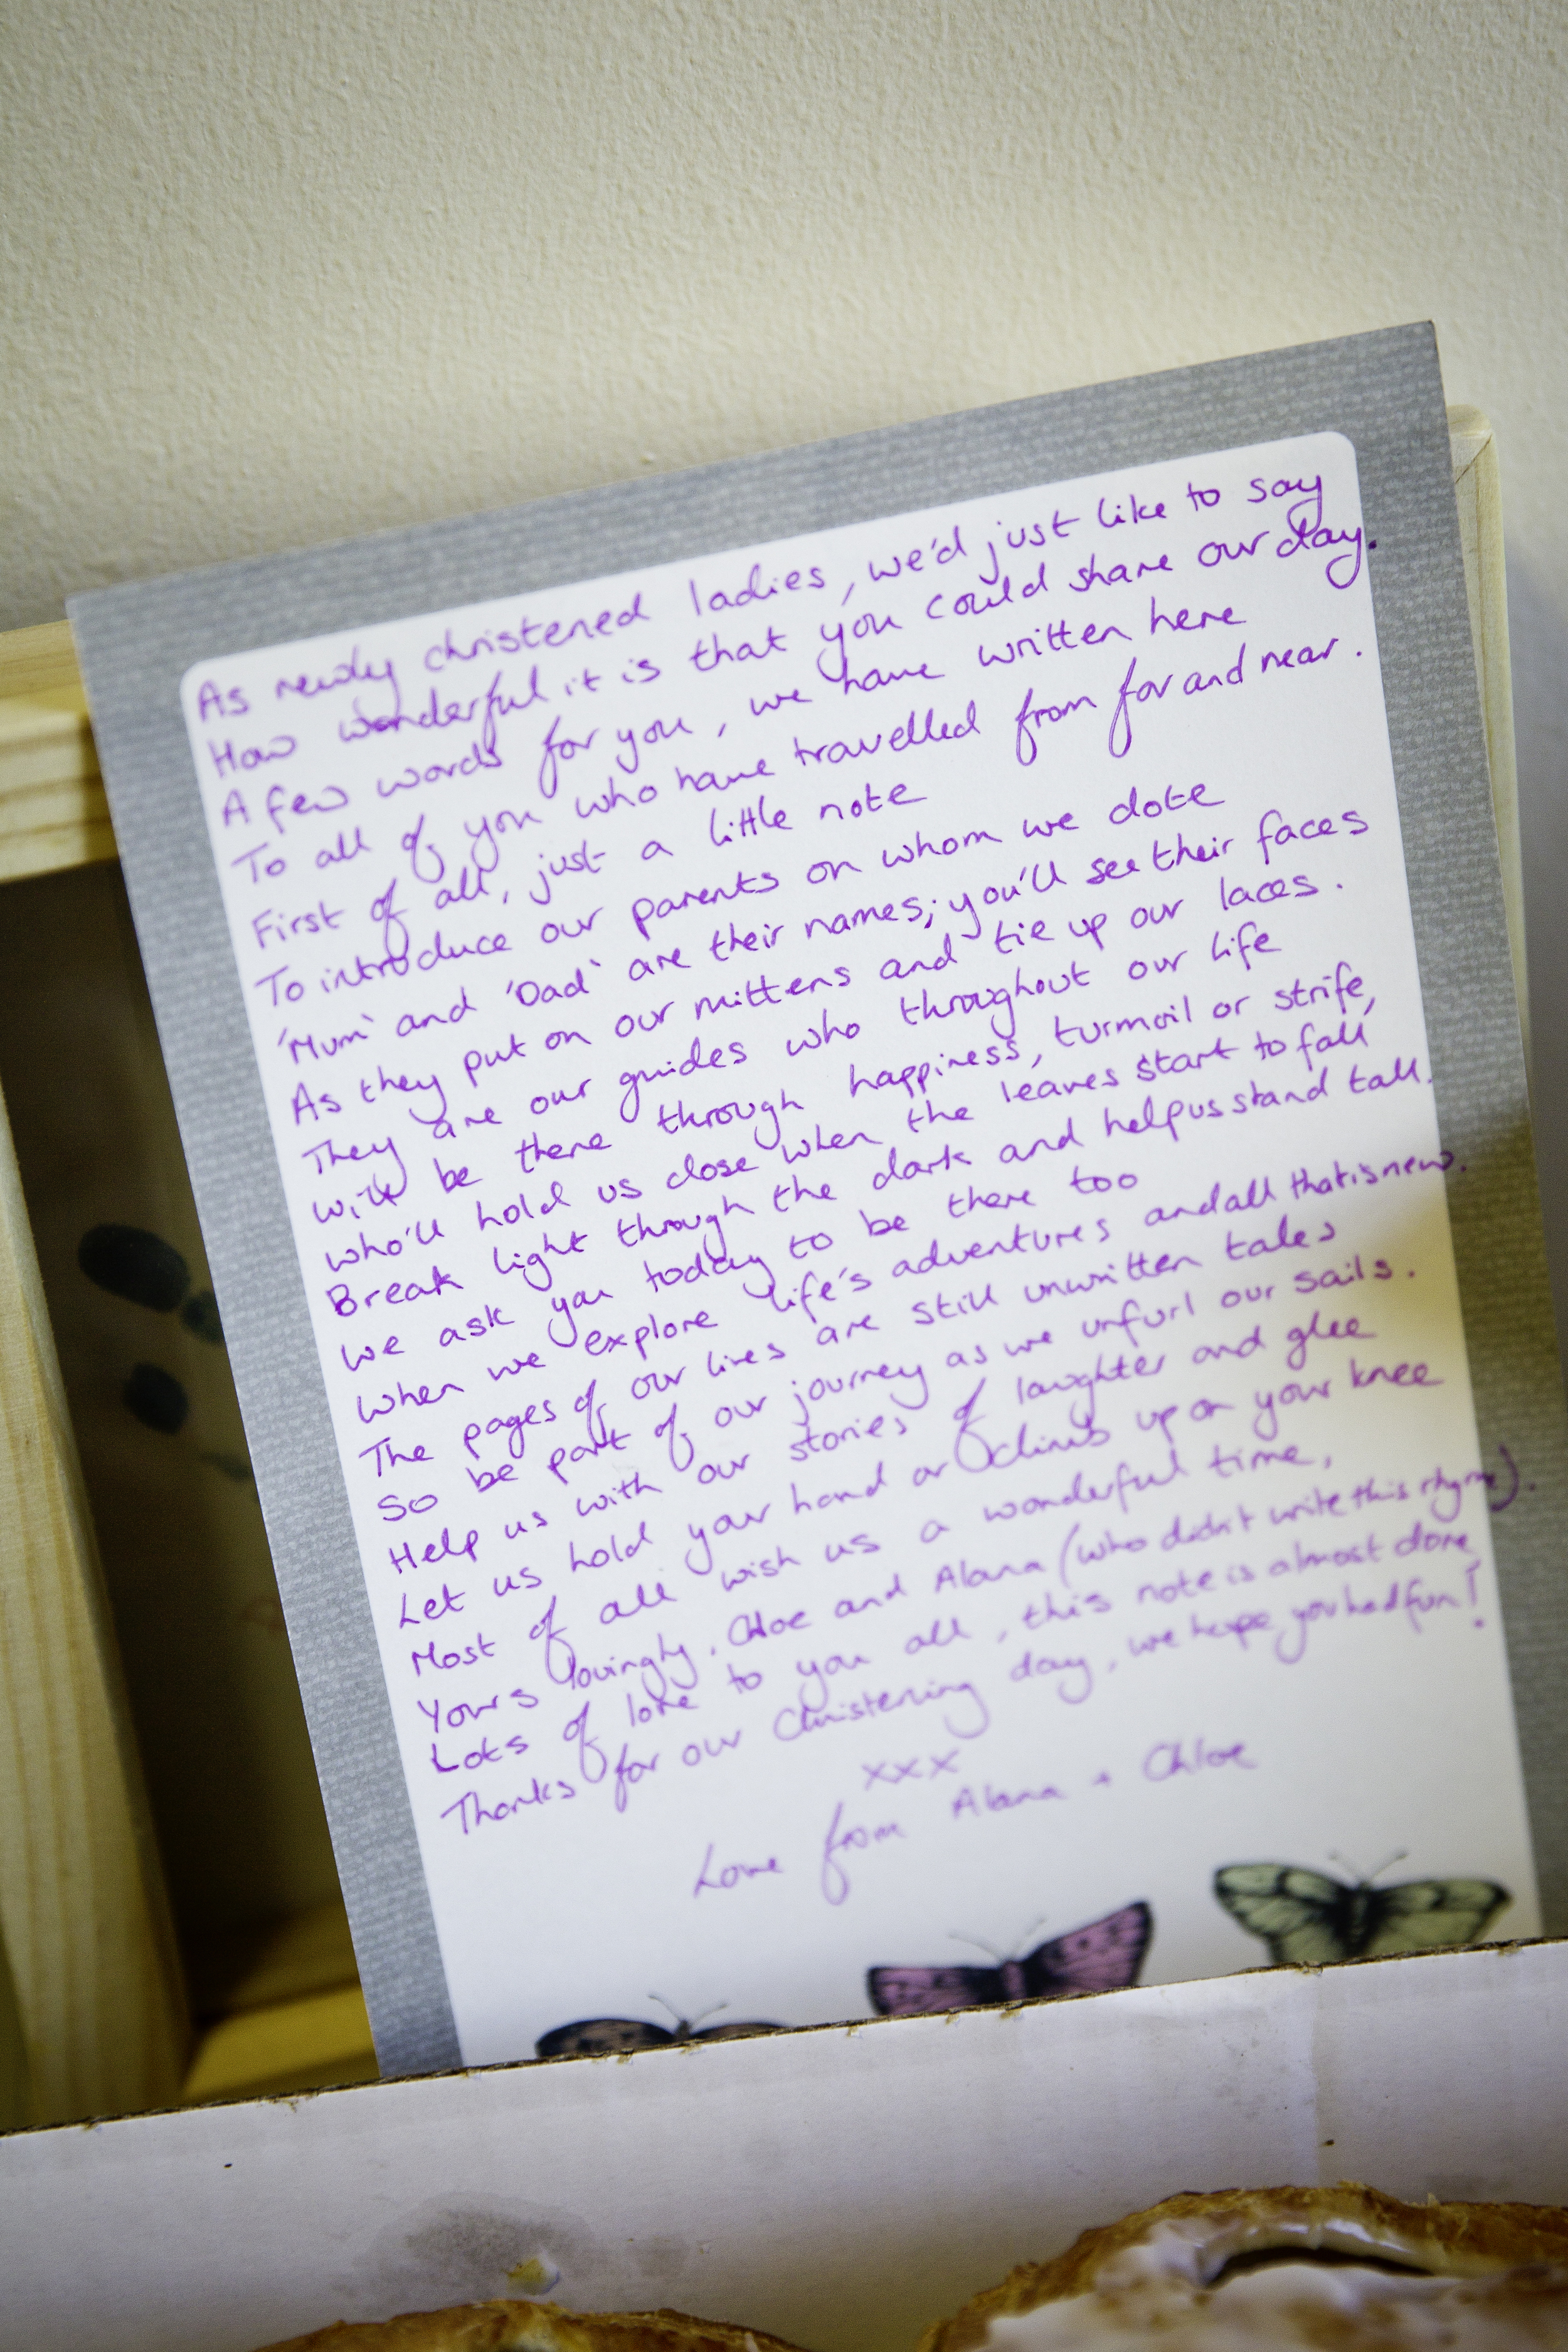 As newly christened ladies, we'd just like to say
How wonderful it is that you could share our day.
A few words for you, we have written here
To all of you who have travelled from far and near.
First of all, just a little note
To introduce our parents on whom we dote
'Mum' and 'Dad' are their names; you'll see their faces
As they put on our mittens and tie up our laces.
They are our guides who throughout our life
Will be there through happiness, turmoil or strife,
Who'll hold us close when the leaves start to fall,
Break light through the dark and help us stand tall.
We ask you today to be there too
When we explore life's adventures and all that is new.
The pages of our lives are still unwritten tales
So be part of our journey as we unfurl our sails.
Help us with our stories of laughter and glee
Let us hold your hand or climb up on your knee
Most of all wish us a wonderful time,
Yours lovingly, Chloe and Alana (who didn't write this rhyme).
Lots of love to you all, this note is almost done
Thanks for our Christening day, we hope you had fun!
xxx
Love from Alana + Chloe